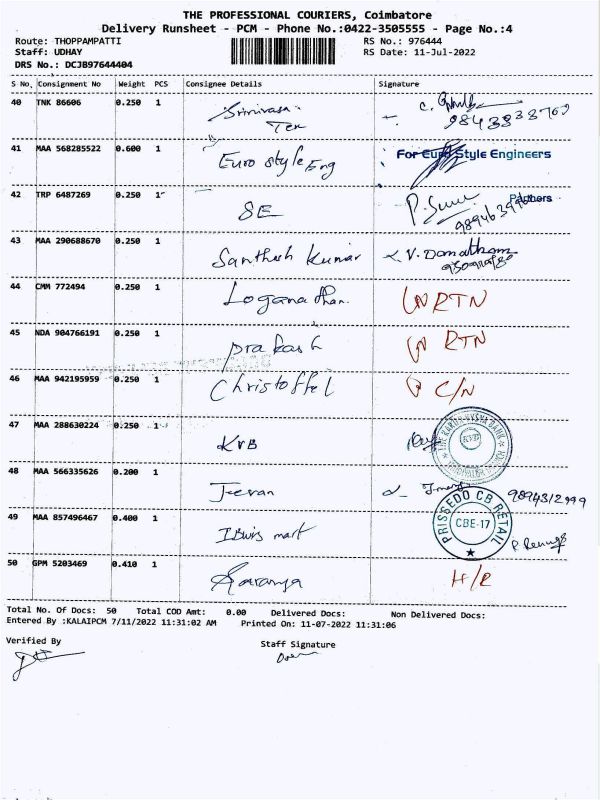 THE PROFESSIONAL COURIERS, Coimbatore
Delivery Runsheet - PCM - Phone No.:0422-3505555 - Page No.:4
Route: THOPPAMPATTI RS No.: 976444
Staff: UDHAY RS Date: 11-Jul-2022
DRS No.: DCJB97644404
S No. Consignment No Weight PCS Consignee Details Signature
40 TNK 86606 0.250 1 Srinivasa Tex
41 MAA 568285522 0.600 1 Euro style Eng For Euro Style Engineers
42 TRP 6487269 0.250 1 SE Partners
43 MAA 290688670 0.250 1 Santhosh Kumar
44 CMM 772494 0.250 1 Loganathan RTN
45 NDA 904766191 0.250 1 prakash RTN
46 MAA 942195959 0.250 1 Christoffel C/N
47 MAA 288630224 0.250 1 KVB
48 MAA 566335626 0.200 1 Jeevan
49 MAA 857496467 0.400 1 mart PRISSEDO CB RETAIL CBE-17
50 GPM 5203469 0.410 1 Saranya
Total No. Of Docs: 50 Total COD Amt: 0.00 Delivered Docs: Non Delivered Docs:
Entered By :KALAIPCM 7/11/2022 11:31:02 AM Printed On: 11-07-2022 11:31:06
Verified By Staff Signature